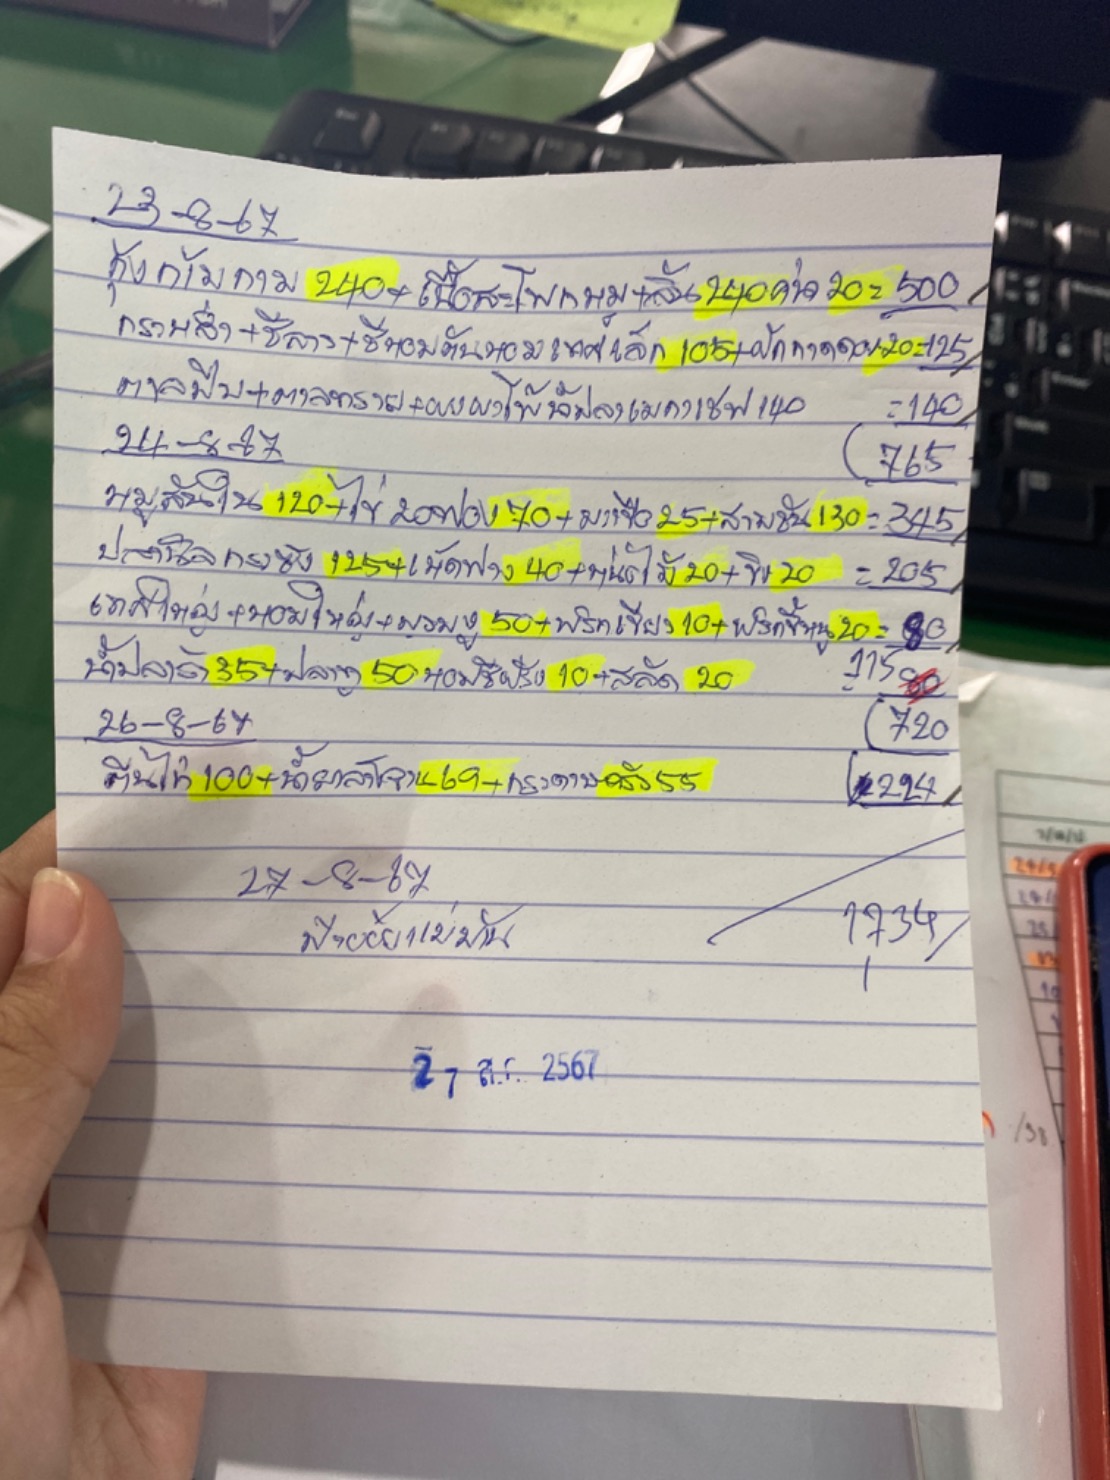 23-8-67
กุ้งก้ามกาม 240+เนื้อสะโพกหมู+ลิ้น 240 20=500
+ชีลาว+ชีหอมต้นหอมเทศเล็ก 105+ผักกาดดอง 20=125
ตาลปีบ+ตาลทราย+ น้ำปลาเมกาเชฟ 140 =140
(765
24-8-67
หมูสันใน 120+ไข่ 20ฟอง 70+มะเขือ 25+สามชั้น 130=345
ปลานิลกระชัง 125+เห็ดฟาง 40+หน่อไม้ 20+ขิง 20 =205
เทศใหญ่+หอมใหญ่+บวบงู 50+พริกเขียว 10+พริกขี้หนู 20=80
น้ำปลาร้า 35+ปลาทู 50 หอมชีฝรั่ง 10+สลัด 20
=115
(720
26-8-67
ตีนไก่ 100+น้ำยาล้างจาน 69+กระดาษ 55
224
27-8-67
1734
27 ส.ค. 2567